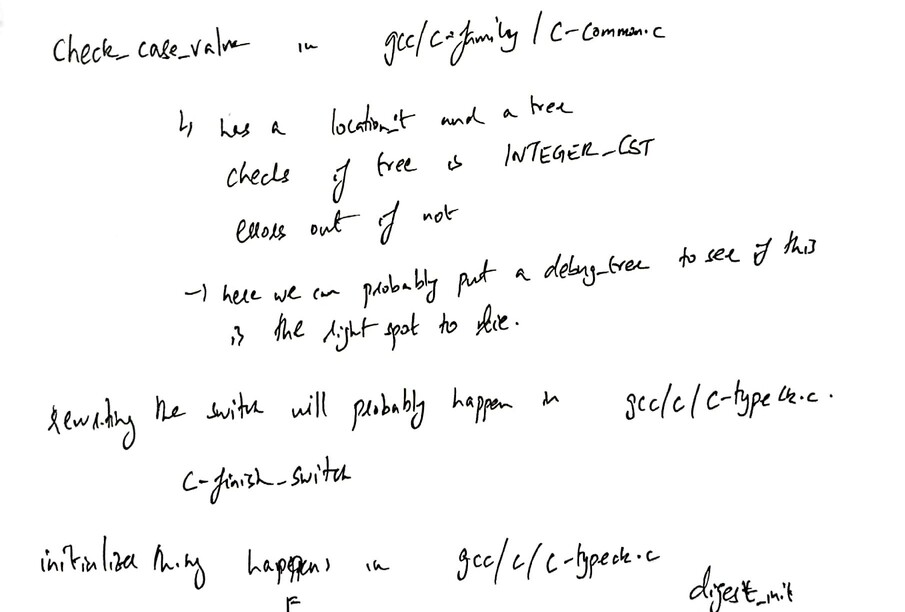 check_case_value in gcc/c-family/c-common.c
↳ has a location_t and a tree
checks if tree is INTEGER_CST
errors out if not
→ here we can probably put a debug_tree to see if this
is the right spot to
rewriting the switch will probably happen in gcc/c/c-typeck.c.
c-finish_switch
initializer thing happens in gcc/c/c-typeck.c
digest_init